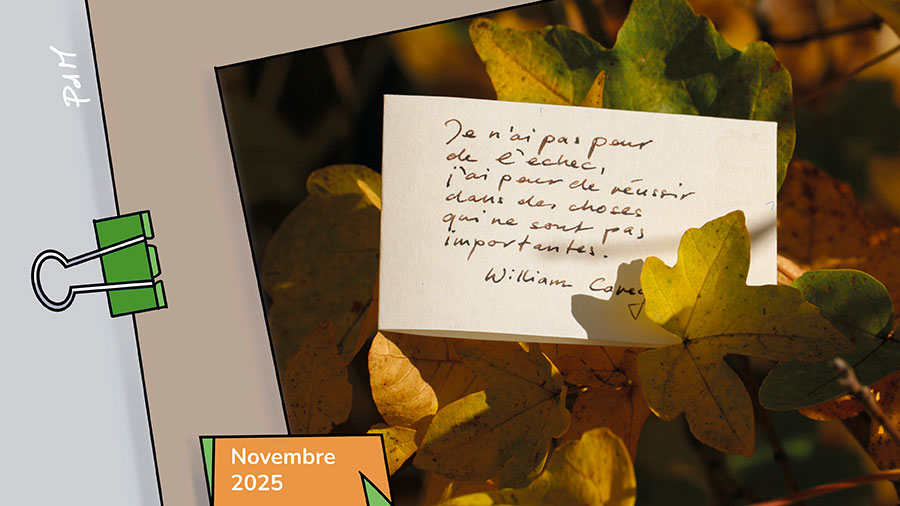 PdM
Je n'ai pas peur
de l'échec,
j'ai peur de réussir
dans des choses
qui ne sont pas
importantes.
William Carey
Novembre
2025